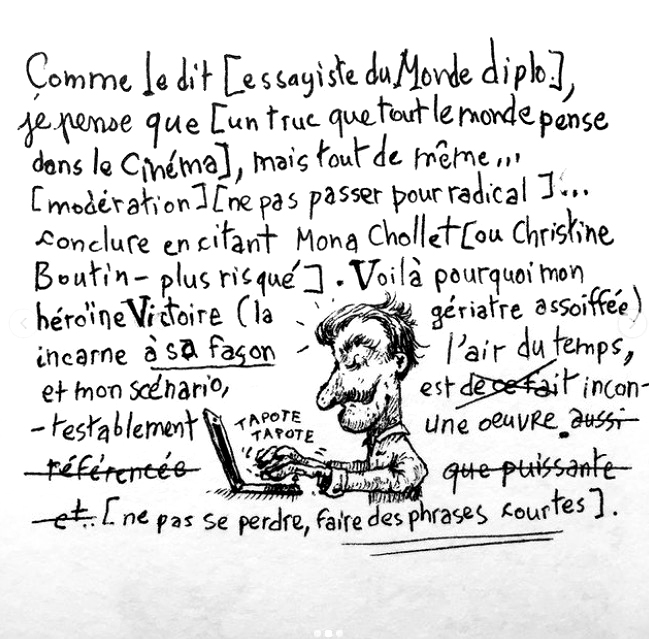 Comme le dit [essayiste du Monde diplo.],
je pense que [un truc que tout le monde pense
dans le Cinéma], mais tout de même...
[modération][ne pas passer pour radical]...
conclure en citant Mona Chollet [ou Christine
Boutin - plus risqué]. Voilà pourquoi mon
héroïne Victoire (la gériatre assoiffée)
incarne à sa façon l'air du temps,
et mon scénario, est de ce fait incon-
-testablement une oeuvre. aussi
référencée que puissante
et.. [ne pas se perdre, faire des phrases courtes].
TAPOTE
TAPOTE